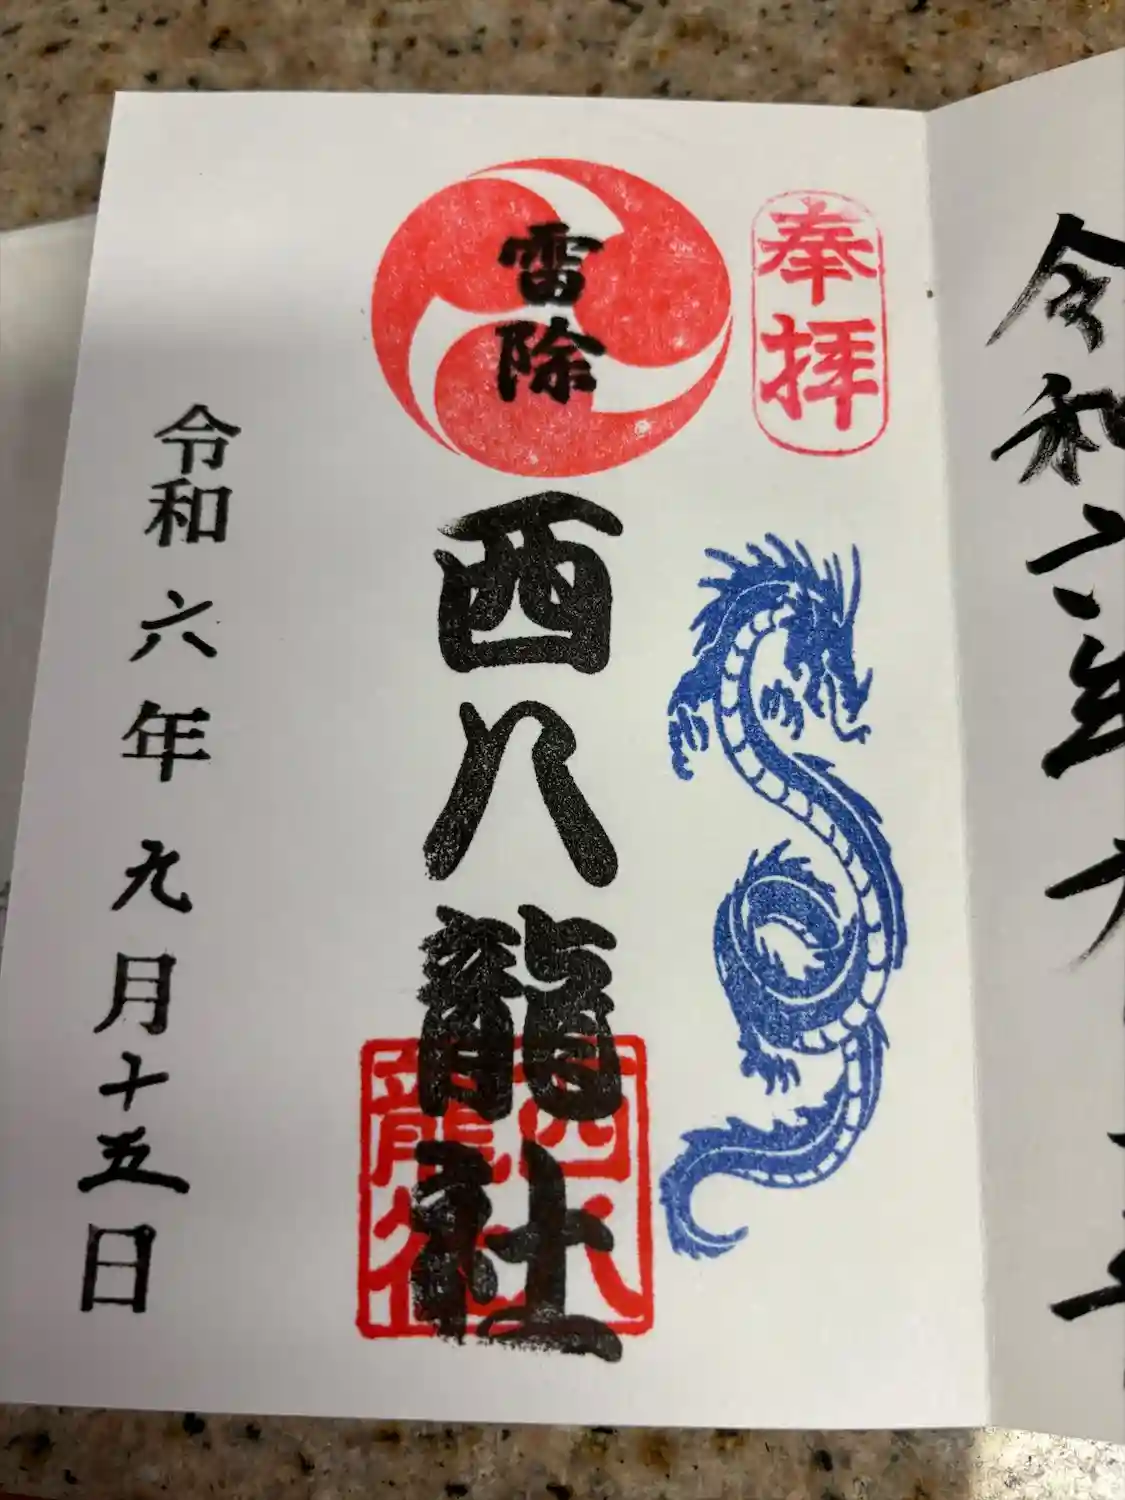 奉拝
雷除
西八龍社
西八
龍社
令和六年九月十五日
令和六年九